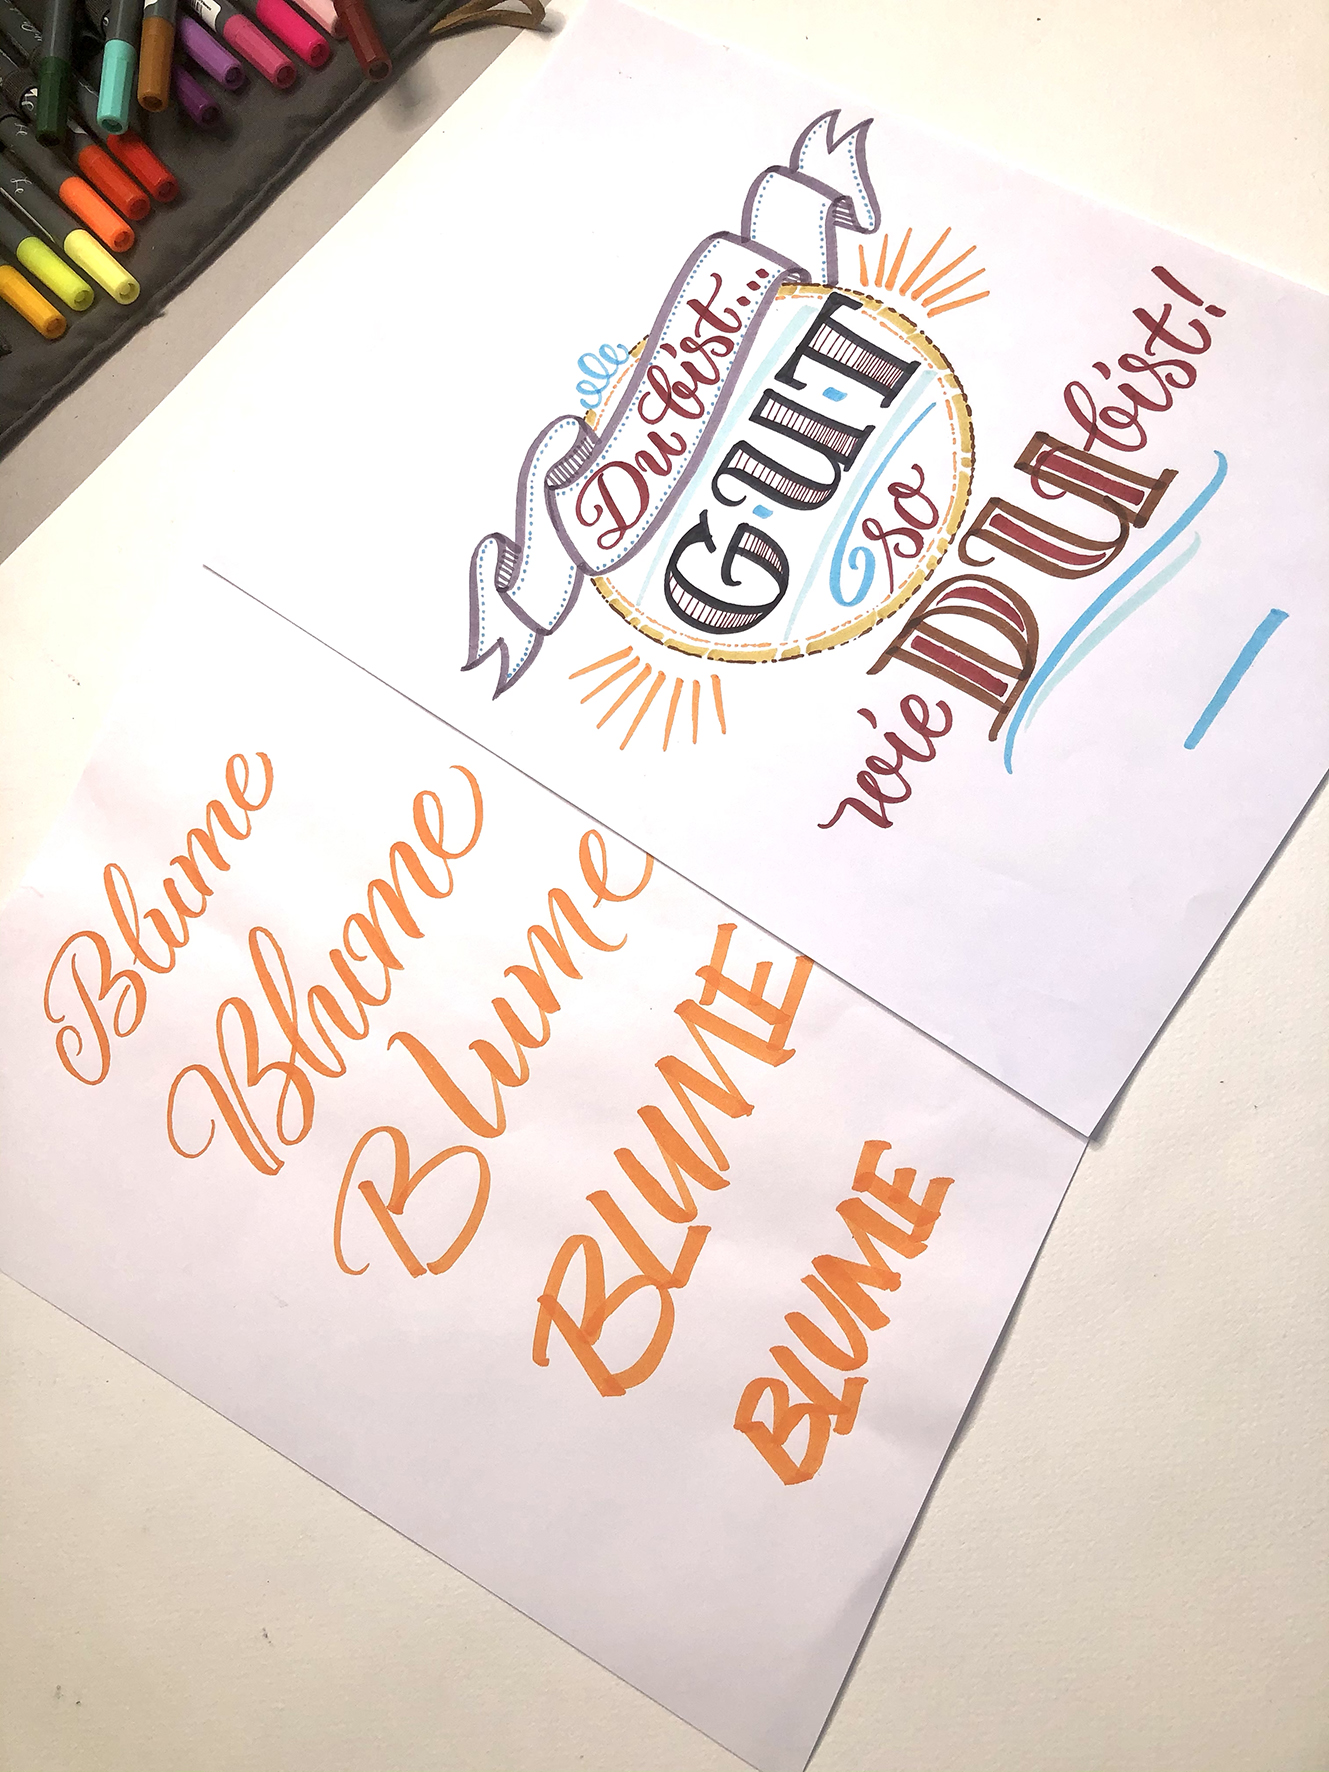 Du bist...
G·U·T
so
wie DU bist!
Blume
Blume
Blume
BLUME
BLUME